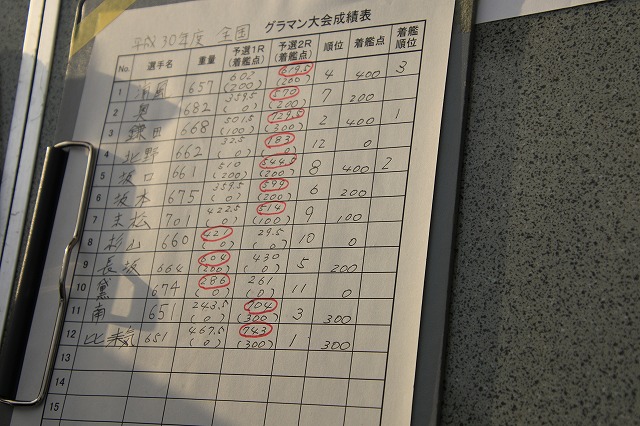 平成30年度 全国 グラマン大会成績表
No. 選手名 重量 予選1R (着艦点) 予選2R (着艦点) 順位 着艦点 着艦順位
1 657 602 (200) 619.5 (200) 4 400 3
2 奥 682 359.5 (0) 570 (200) 7 200
3 鎌田 668 501.5 (100) 729.5 (300) 2 400 1
4 北野 662 32.5 (0) 183 (0) 12 0
5 坂口 661 510 (200) 544.5 (200) 8 400 2
6 坂本 675 359.5 (0) 599 (200) 6 200
7 末松 701 422.5 (0) 514 (100) 9 100
8 杉山 660 427 (0) 29.5 (0) 10 0
9 長坂 664 604 (200) 430 (0) 5 200
10 黛 674 286 (0) 261 (0) 11 0
11 南 651 243.5 (0) 704 (300) 3 300
12 比来気 651 467.5 (0) 743 (300) 1 300
13
14
15